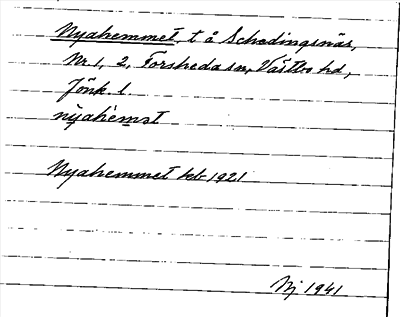 Nyahemmet, t å Schedingsnäs,
Nr. 1, 2, Forsheda sn, Västbo hd,
Jönk. l.
nỳahèmət
Nyahemmet bebr 1921
Nj 1941